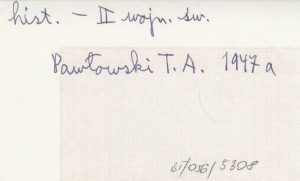 hist. – II wojn. św.
Pawłowski T. A. 1947 a
61/056/5308